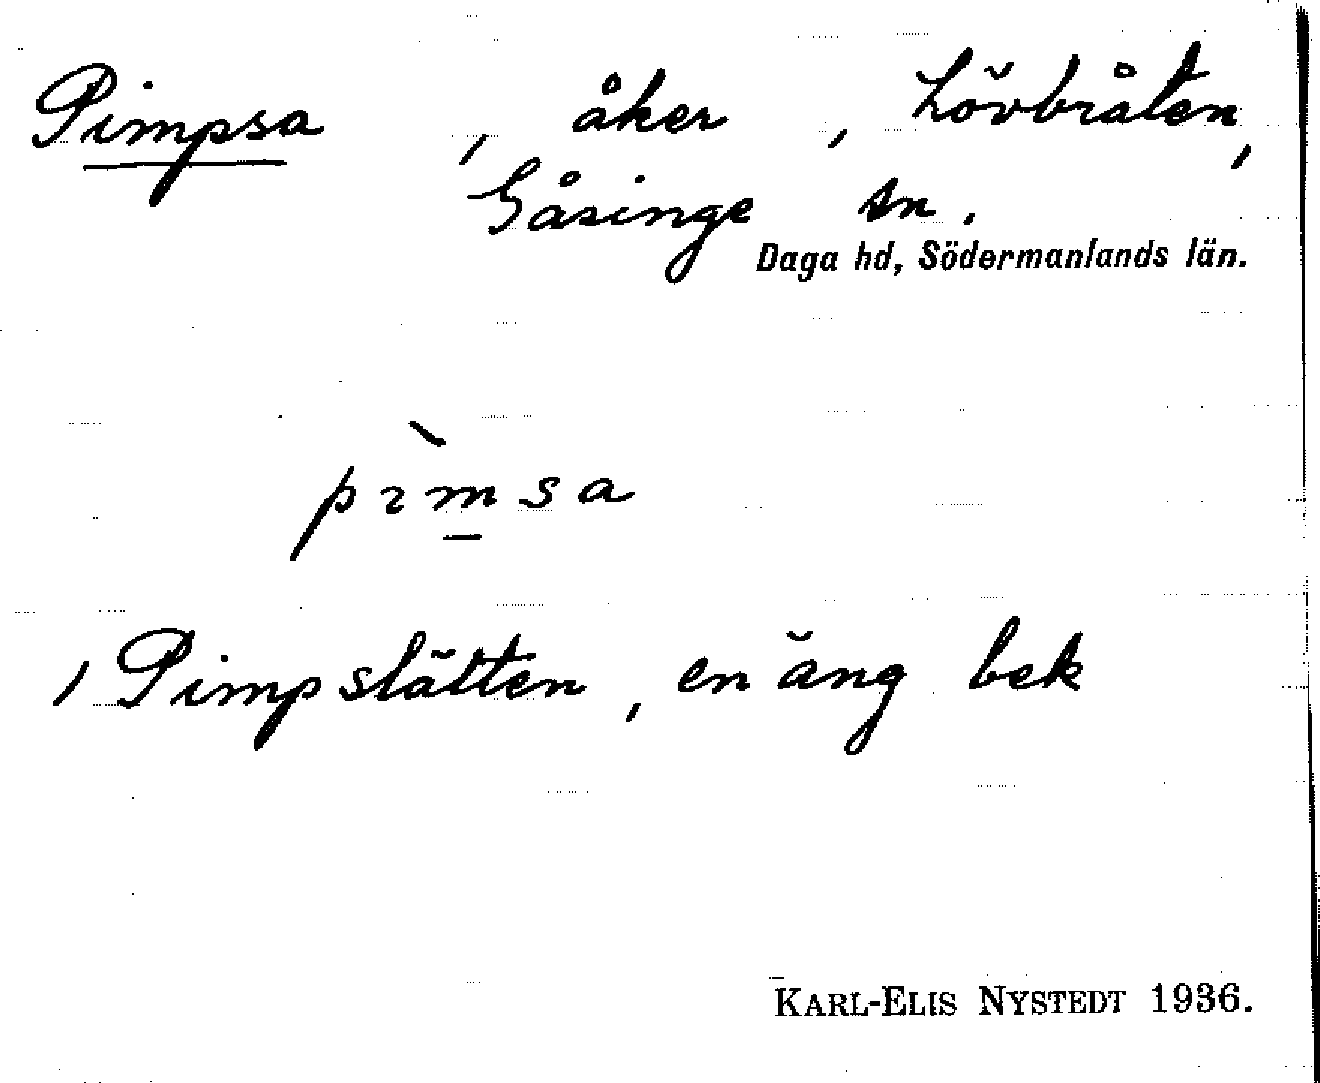 Pimpsa, åker, Lövbråten,
Gåsinge sn.
Daga hd, Södermanlands län.
pɪ̀m̱sa
/ Pimpslätten, en äng bek
KARL-ELIS NYSTEDT 1936.